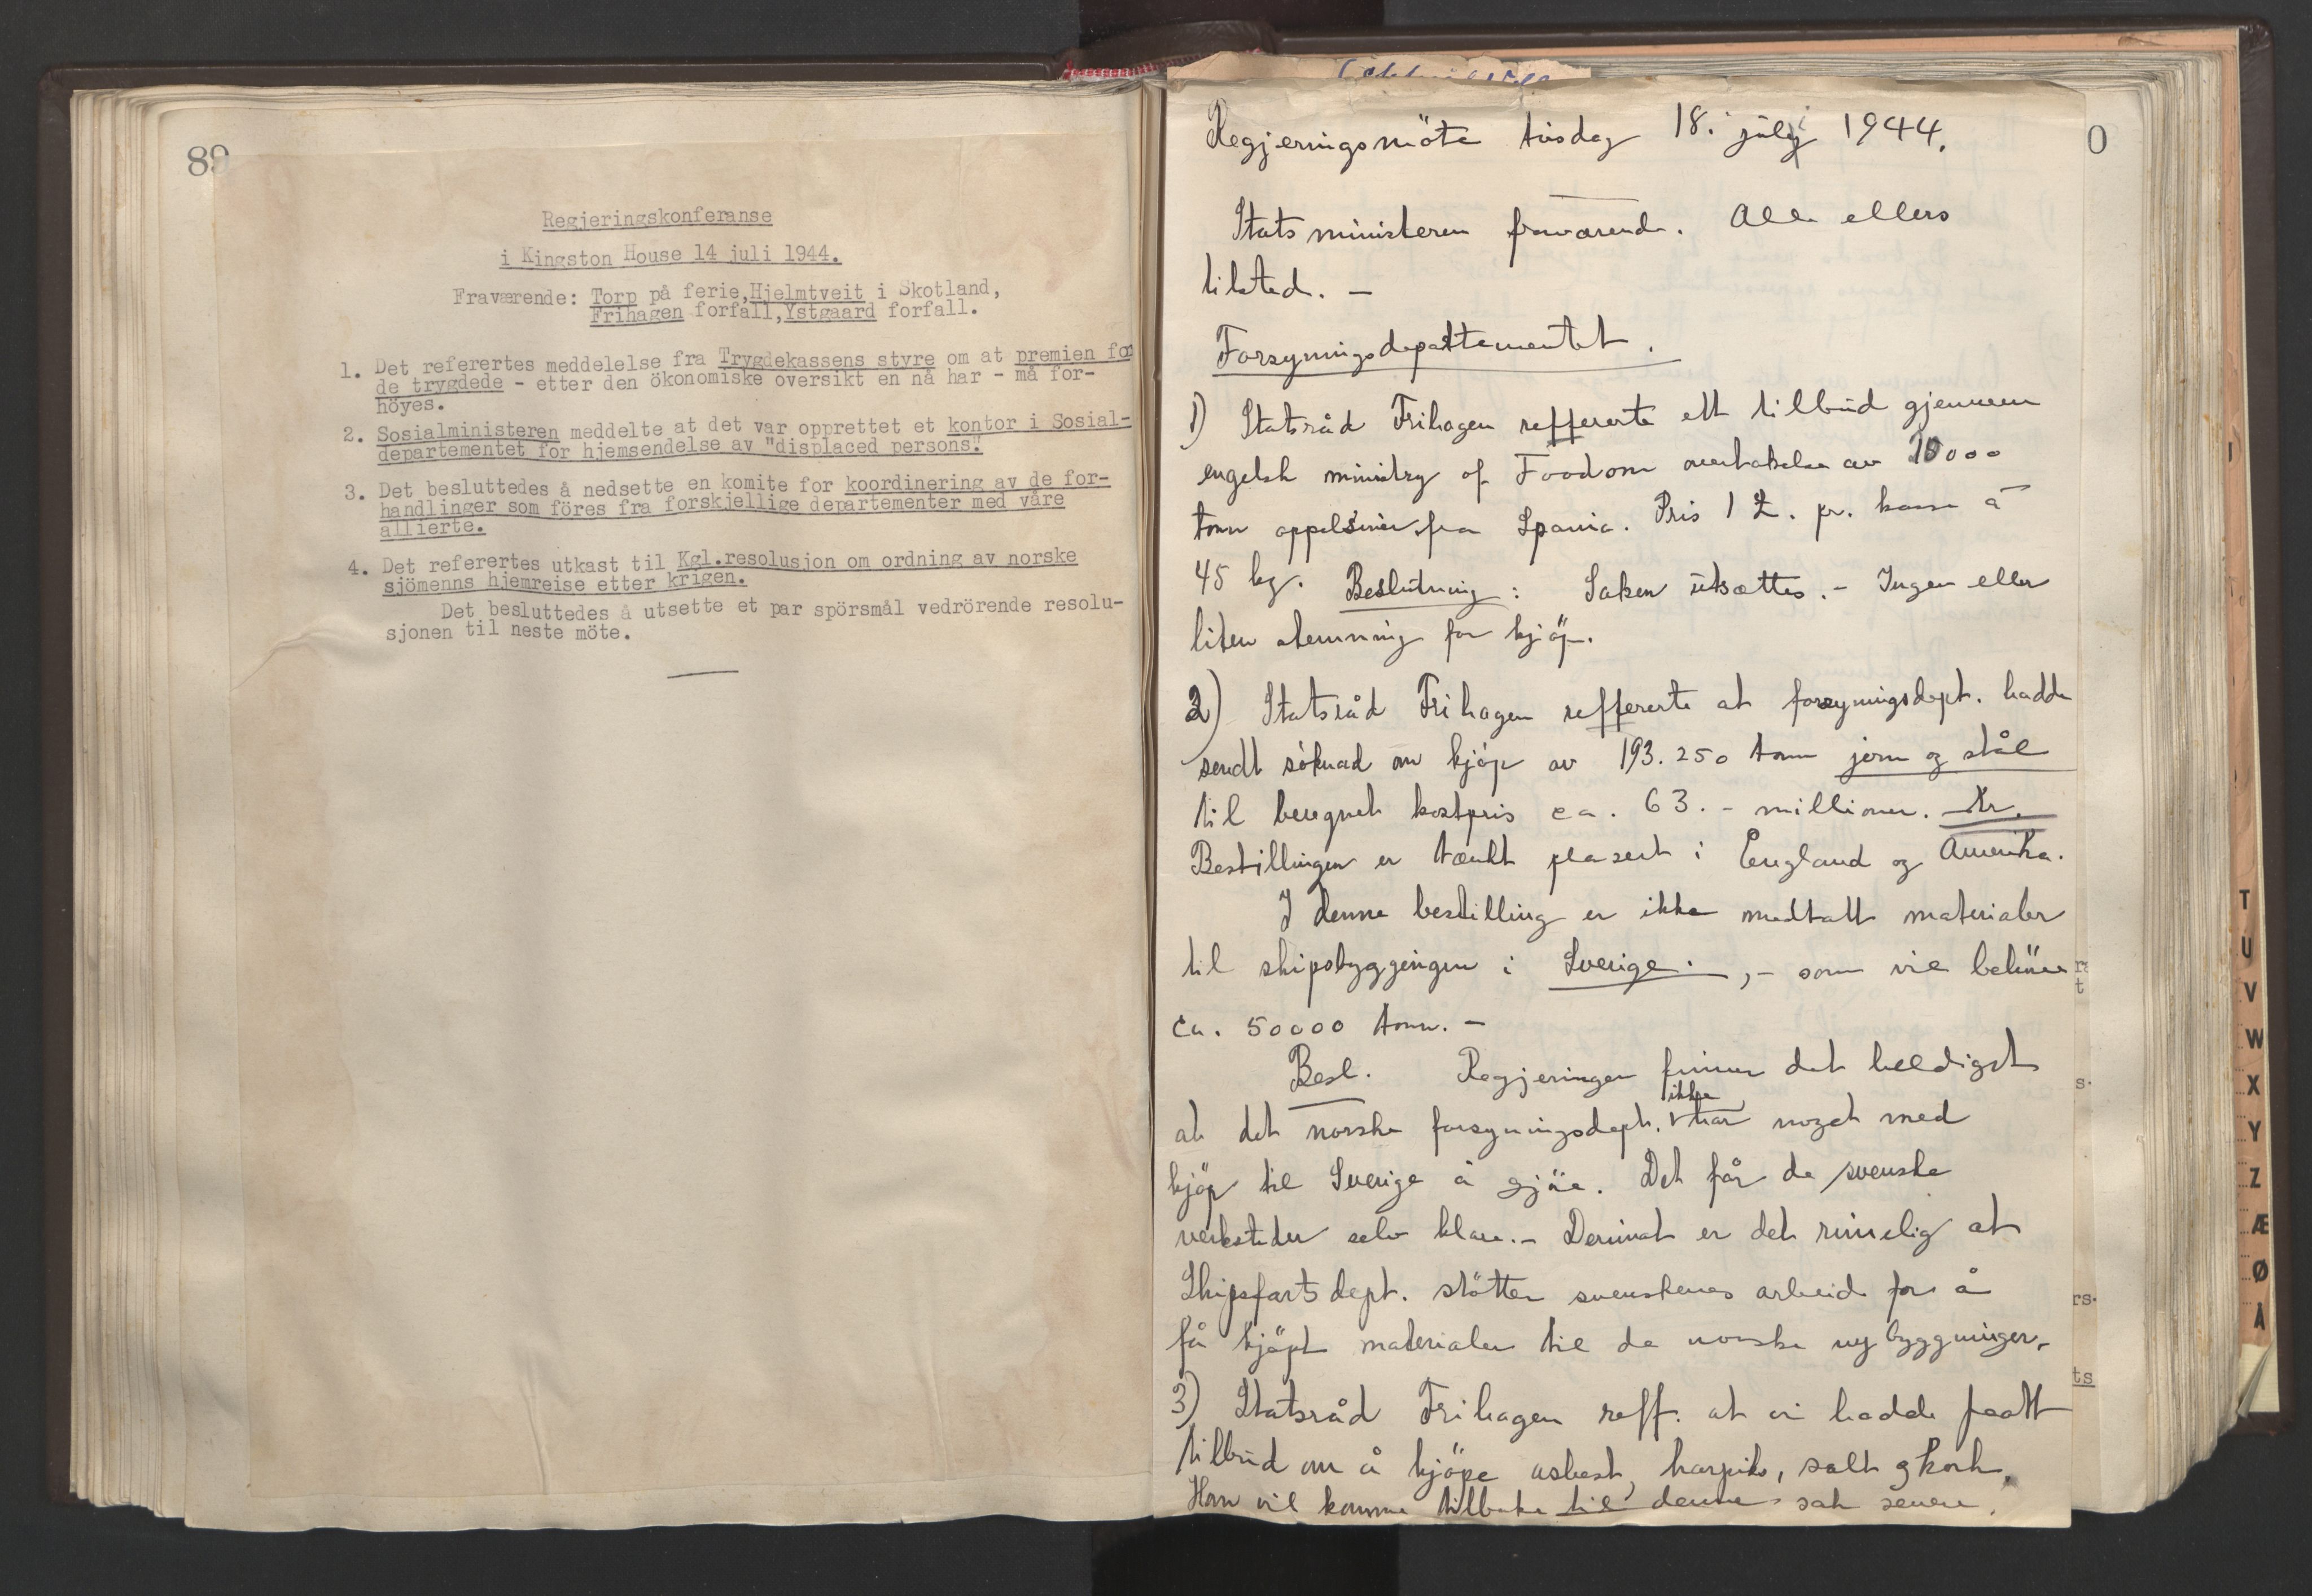 89
Regjeringskonferanse
i Kingston House 14 juli 1944.
Fraværende: Torp på ferie,Hjelmtveit i Skotland,
Frihagen forfall,Ystgaard forfall.
1. Det referertes meddelelse fra Trygdekassens styre om at premien for
de trygdede - etter den ökonomiske oversikt en nå har - må for-
höyes.
2. Sosialministeren meddelte at det var opprettet et kontor i Sosial-
departementet for hjemsendelse av "displaced persons".
3. Det besluttedes å nedsette en komite for koordinering av de for-
handlinger som föres fra forskjellige departementer med våre
allierte.
4. Det referertes utkast til Kgl.resolusjon om ordning av norske
sjömenns hjemreise etter krigen.
Det besluttedes å utsette et par spörsmål vedrörende resolu-
sjonen til neste möte.
0
Regjeringsmöte tirsdag 18. juli 1944.
Statsministeren fraværende. Alle ellers
tilsted. -
Forsyningsdepartementet.
1) Statsråd Frihagen reffererte ett tilbud gjennem
engelsk ministry of Food om overtakelse av 10000
tonn appelsiner fra Spania. Pris 1 £. pr. kasse à
45 kg. Beslutning: Saken utsættes. - Ingen eller
liten stemning for kjöp.
2) Statsråd Frihagen reffererte at forsyningsdept. hadde
sendt söknad om kjöp av 193.250 tonn jern og stål
til beregnet kostpris ca. 63.- millioner. Kr.
Bestillingen er tænkt plasert i England og Amerika.
I denne bestilling er ikke medtatt materialer
til skipsbyggingen i Sverige. ,- som vil behöve
ca. 50000 tonn. -
Besl. Regjeringen finner det heldigst
at det norske forsyningsdept. ikke har noget med
kjöp til Sverige å gjöre. Det får de svenske
verksteder selv klare. - Derimot er det rimelig at
Skipsfartsdept. stötter svenskenes arbeid for å
få kjöpt materialer til de norske nybygginger.
3) Statsråd Frihagen reff. at vi hadde faatt
tilbud om å kjöpe asbest, harpiks, salt og kork.
Han vil komme tilbake til denne sak senere.
T
U
V
W
X
Y
Z
Æ
Ø
Å